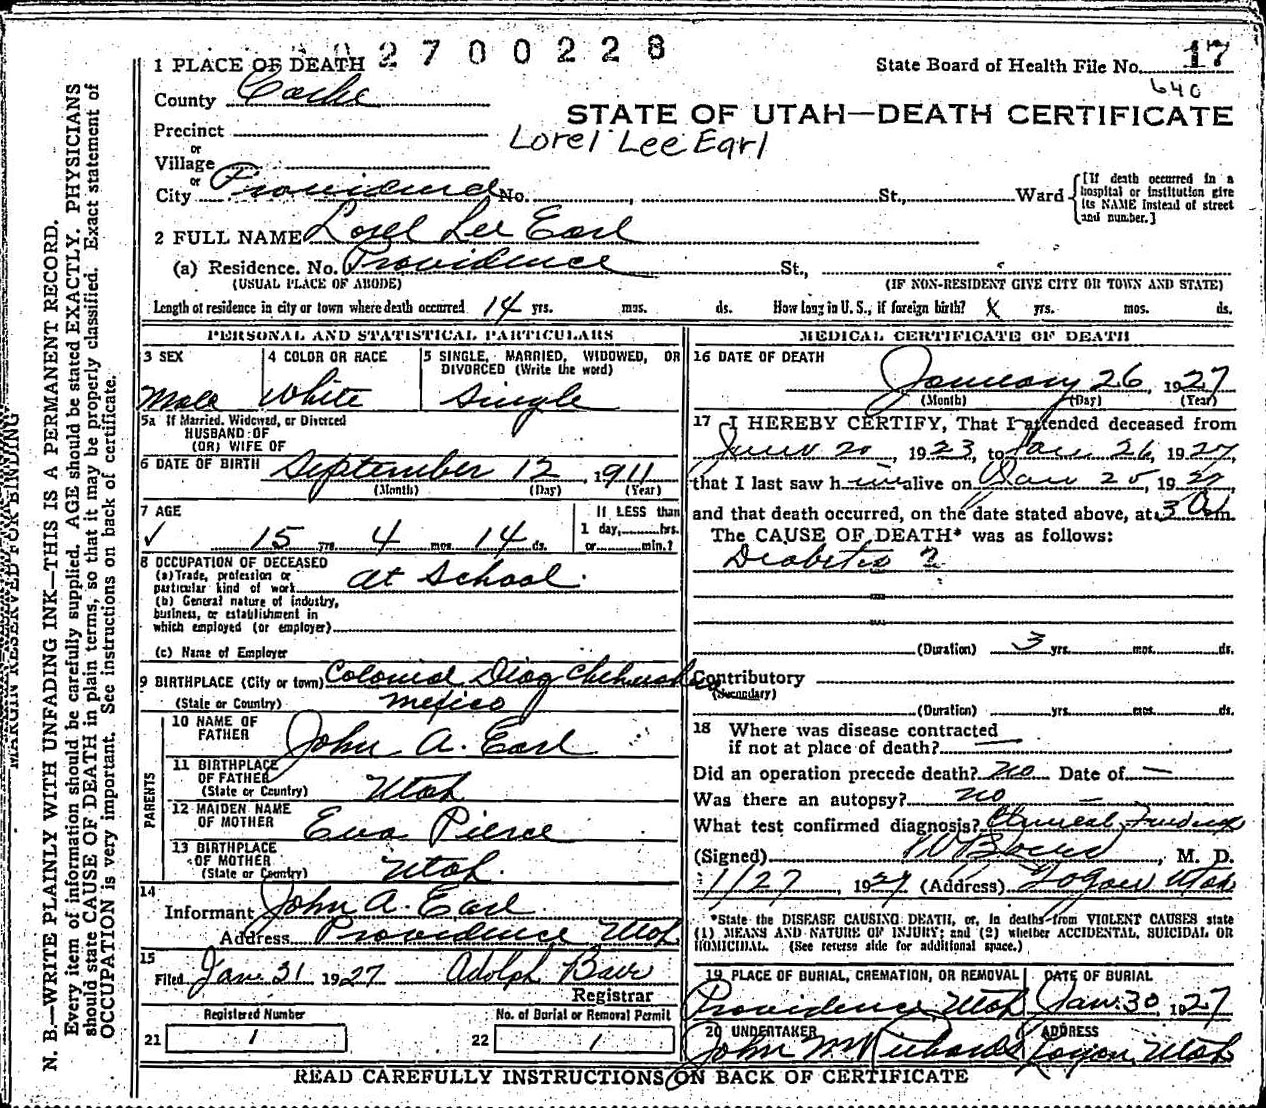 2700228
1 PLACE OF DEATH
State Board of Health File No. 17
640
County Cache
STATE OF UTAH—DEATH CERTIFICATE
Lorel Lee Earl
Precinct
or
Village
or
City Providence No. St., Ward
[If death occurred in a hospital or institution give its NAME instead of street and number.]
2 FULL NAME Lorel Lee Earl
(a) Residence. No. Providence St.,
(USUAL PLACE OF ABODE) (IF NON-RESIDENT GIVE CITY OR TOWN AND STATE)
Length of residence in city or town where death occurred 14 yrs. mos. ds. How long in U. S., if foreign birth? X yrs. mos. ds.
PERSONAL AND STATISTICAL PARTICULARS
3 SEX
Male
4 COLOR OR RACE
White
5 SINGLE, MARRIED, WIDOWED, OR DIVORCED (Write the word)
Single
5a If Married, Widowed, or Divorced
HUSBAND OF
(OR) WIFE OF
6 DATE OF BIRTH September 12, 1911
(Month) (Day) (Year)
7 AGE
✓ 15 yrs. 4 mos. 14 ds.
If LESS than
1 day, hrs.
or min.?
8 OCCUPATION OF DECEASED
(a) Trade, profession or
particular kind of work at School
(b) General nature of industry,
business, or establishment in
which employed (or employer)
(c) Name of Employer
9 BIRTHPLACE (City or town) Colonial Diaz Chihuahua
(State or Country) mexico
PARENTS
10 NAME OF FATHER John A. Earl
11 BIRTHPLACE OF FATHER
(State or Country) Utah
12 MAIDEN NAME OF MOTHER Eva Pierce
13 BIRTHPLACE OF MOTHER
(State or Country) Utah
14
Informant John A. Earl
Address Providence Utah
15
Filed Jan. 31 1927 Adolph Baer
Registrar
Registered Number
21 1
No. of Burial or Removal Permit
22 1
MEDICAL CERTIFICATE OF DEATH
16 DATE OF DEATH
January 26, 1927
(Month) (Day) (Year)
17 I HEREBY CERTIFY, That I attended deceased from
June 20, 1923, to Jan 26, 1927,
that I last saw him alive on Jan 25, 1927,
and that death occurred, on the date stated above, at 3 m.
The CAUSE OF DEATH* was as follows:
Diabetis
(Duration) 3 yrs. mos. ds.
Contributory
(Secondary)
(Duration) yrs. mos. ds.
18 Where was disease contracted
if not at place of death? —
Did an operation precede death? no Date of —
Was there an autopsy? no —
What test confirmed diagnosis? Clinical
(Signed) , M. D.
1/27, 1927 (Address) Logan Utah
*State the DISEASE CAUSING DEATH, or, in deaths from VIOLENT CAUSES state
(1) MEANS AND NATURE OF INJURY; and (2) whether ACCIDENTAL, SUICIDAL OR
HOMICIDAL. (See reverse side for additional space.)
19 PLACE OF BURIAL, CREMATION, OR REMOVAL
Providence Utah
DATE OF BURIAL
Jan. 30, 1927
20 UNDERTAKER
John M Richards
ADDRESS
Logan, Utah
READ CAREFULLY INSTRUCTIONS ON BACK OF CERTIFICATE
MARGIN RESERVED FOR BINDING
N. B.—WRITE PLAINLY WITH UNFADING INK—THIS IS A PERMANENT RECORD.
Every item of information should be carefully supplied. AGE should be stated EXACTLY. PHYSICIANS
should state CAUSE OF DEATH in plain terms, so that it may be properly classified. Exact statement of
OCCUPATION is very important. See instructions on back of certificate.